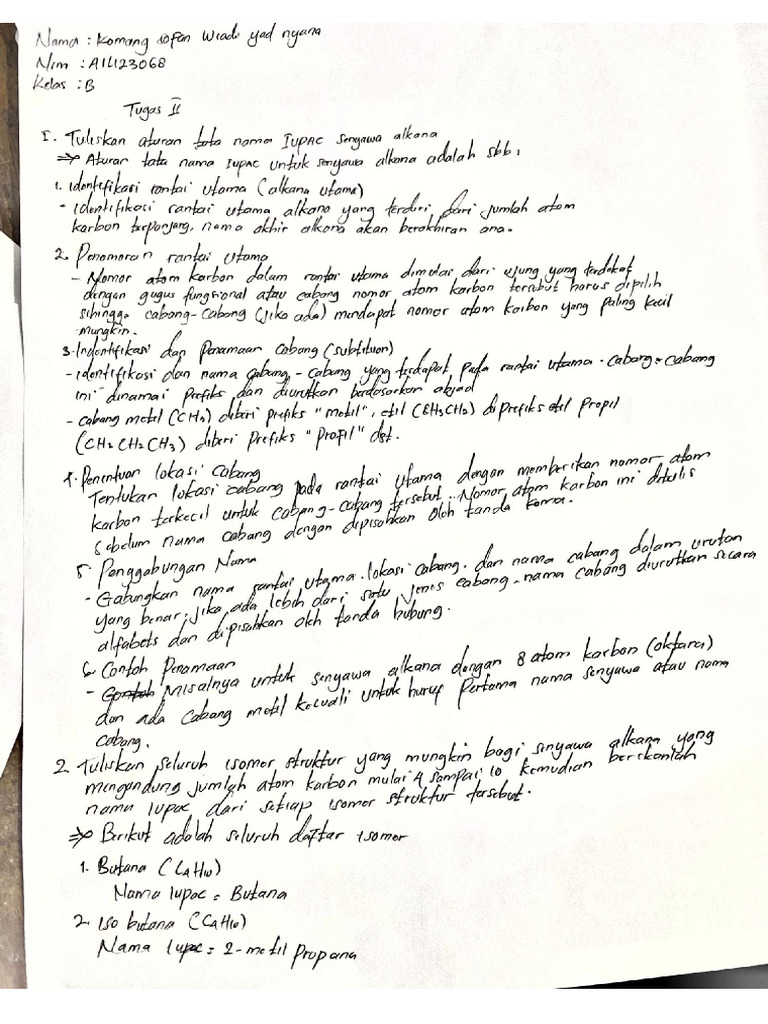 Nama : Komang sofan wiadi yad nyana
Nim : A1L123068
Kelas : B
Tugas II
I. Tuliskan aturan tata nama IUPAC senyawa alkana
=> Aturan tata nama IUPAC untuk senyawa alkana adalah sbb :
1. identifikasi rantai utama (alkana utama)
- identifikasi rantai utama alkana yang terdiri dari jumlah atom
karbon terpanjang, nama akhir alkana akan berakhiran ana.
2. Penomoran rantai utama
- Nomor atom karbon dalam rantai utama dimulai dari ujung yang terdekat
dengan gugus fungsional atau cabang nomor atom karbon tersebut harus dipilih
sehingga cabang-cabang (jika ada) mendapat nomor atom karbon yang paling kecil
mungkin.
3. Indentifikasi dan Penamaan Cabang (subtituen)
- identifikasi dan nama cabang-cabang yang terdapat pada rantai utama. cabang-cabang
ini dinamai Prefiks dan diurutkan berdasarkan abjad
- cabang metil (CH3) diberi prefiks "metil", etil (CH3CH2) diprefiks etil propil
(CH2 CH2 CH3) diberi Prefiks "Propil" dst.
4. Penentuan lokasi Cabang
Tentukan lokasi cabang pada rantai utama dengan memberikan nomor atom
karbon terkecil untuk cabang-cabang tersebut. Nomor atom karbon ini ditulis
sebelum nama cabang dengan dipisahkan oleh tanda koma.
5. Penggabungan Nama
- Gabungkan nama rantai utama, lokasi cabang, dan nama cabang dalam urutan
yang benar, jika ada lebih dari satu jenis cabang, nama cabang diurutkan secara
alfabets dan dipisahkan oleh tanda hubung.
6. Contoh Penamaan
- Misalnya untuk senyawa alkana dengan 8 atom karbon (oktana)
dan ada cabang metil kecuali untuk huruf Pertama nama senyawa atau nama
cabang.
2. Tuliskan seluruh isomer struktur yang mungkin bagi senyawa alkana yang
mengandung jumlah atom karbon mulai 4 sampai 10 kemudian berikanlah
nama IUPAC dari setiap isomer struktur tersebut.
=> Berikut adalah seluruh daftar isomer
1. Butana (C4H10)
Nama Iupac = Butana
2. Iso butana (C4H10)
Nama Iupac = 2-metil Propana